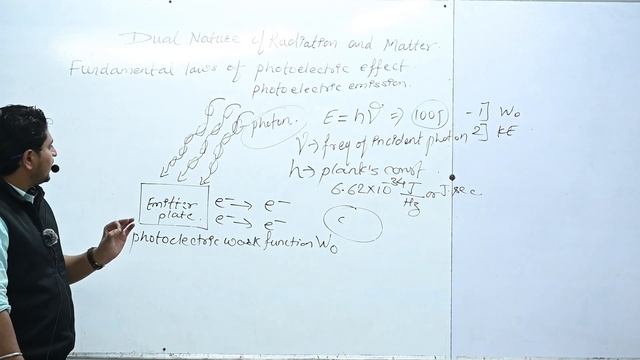 Dual Nature of Radiation and Matter.
Fundamental laws of photoelectric effect.
photoelectric emission.
photon. E = hν ⇒ 100J - 1] W₀
ν → freq of incident photon 2] KE
h → plank's const.
6.62×10⁻³⁴ J/Hz or J.sec
Emitter plate. e⁻ → e⁻
e⁻ → e⁻
photoelectric work function W₀